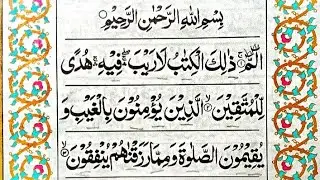 بِسْمِ اللهِ الرَّحْمٰنِ الرَّحِيْمِ ○
الٓمّٓ ۚ ذٰلِكَ الْكِتٰبُ لَا رَيْبَ ۛ فِيْهِ ۛ هُدًى
لِّلْمُتَّقِيْنَ ۙ الَّذِيْنَ يُؤْمِنُوْنَ بِالْغَيْبِ وَ
يُقِيْمُوْنَ الصَّلٰوةَ وَمِمَّا رَزَقْنٰهُمْ يُنْفِقُوْنَ ۙ